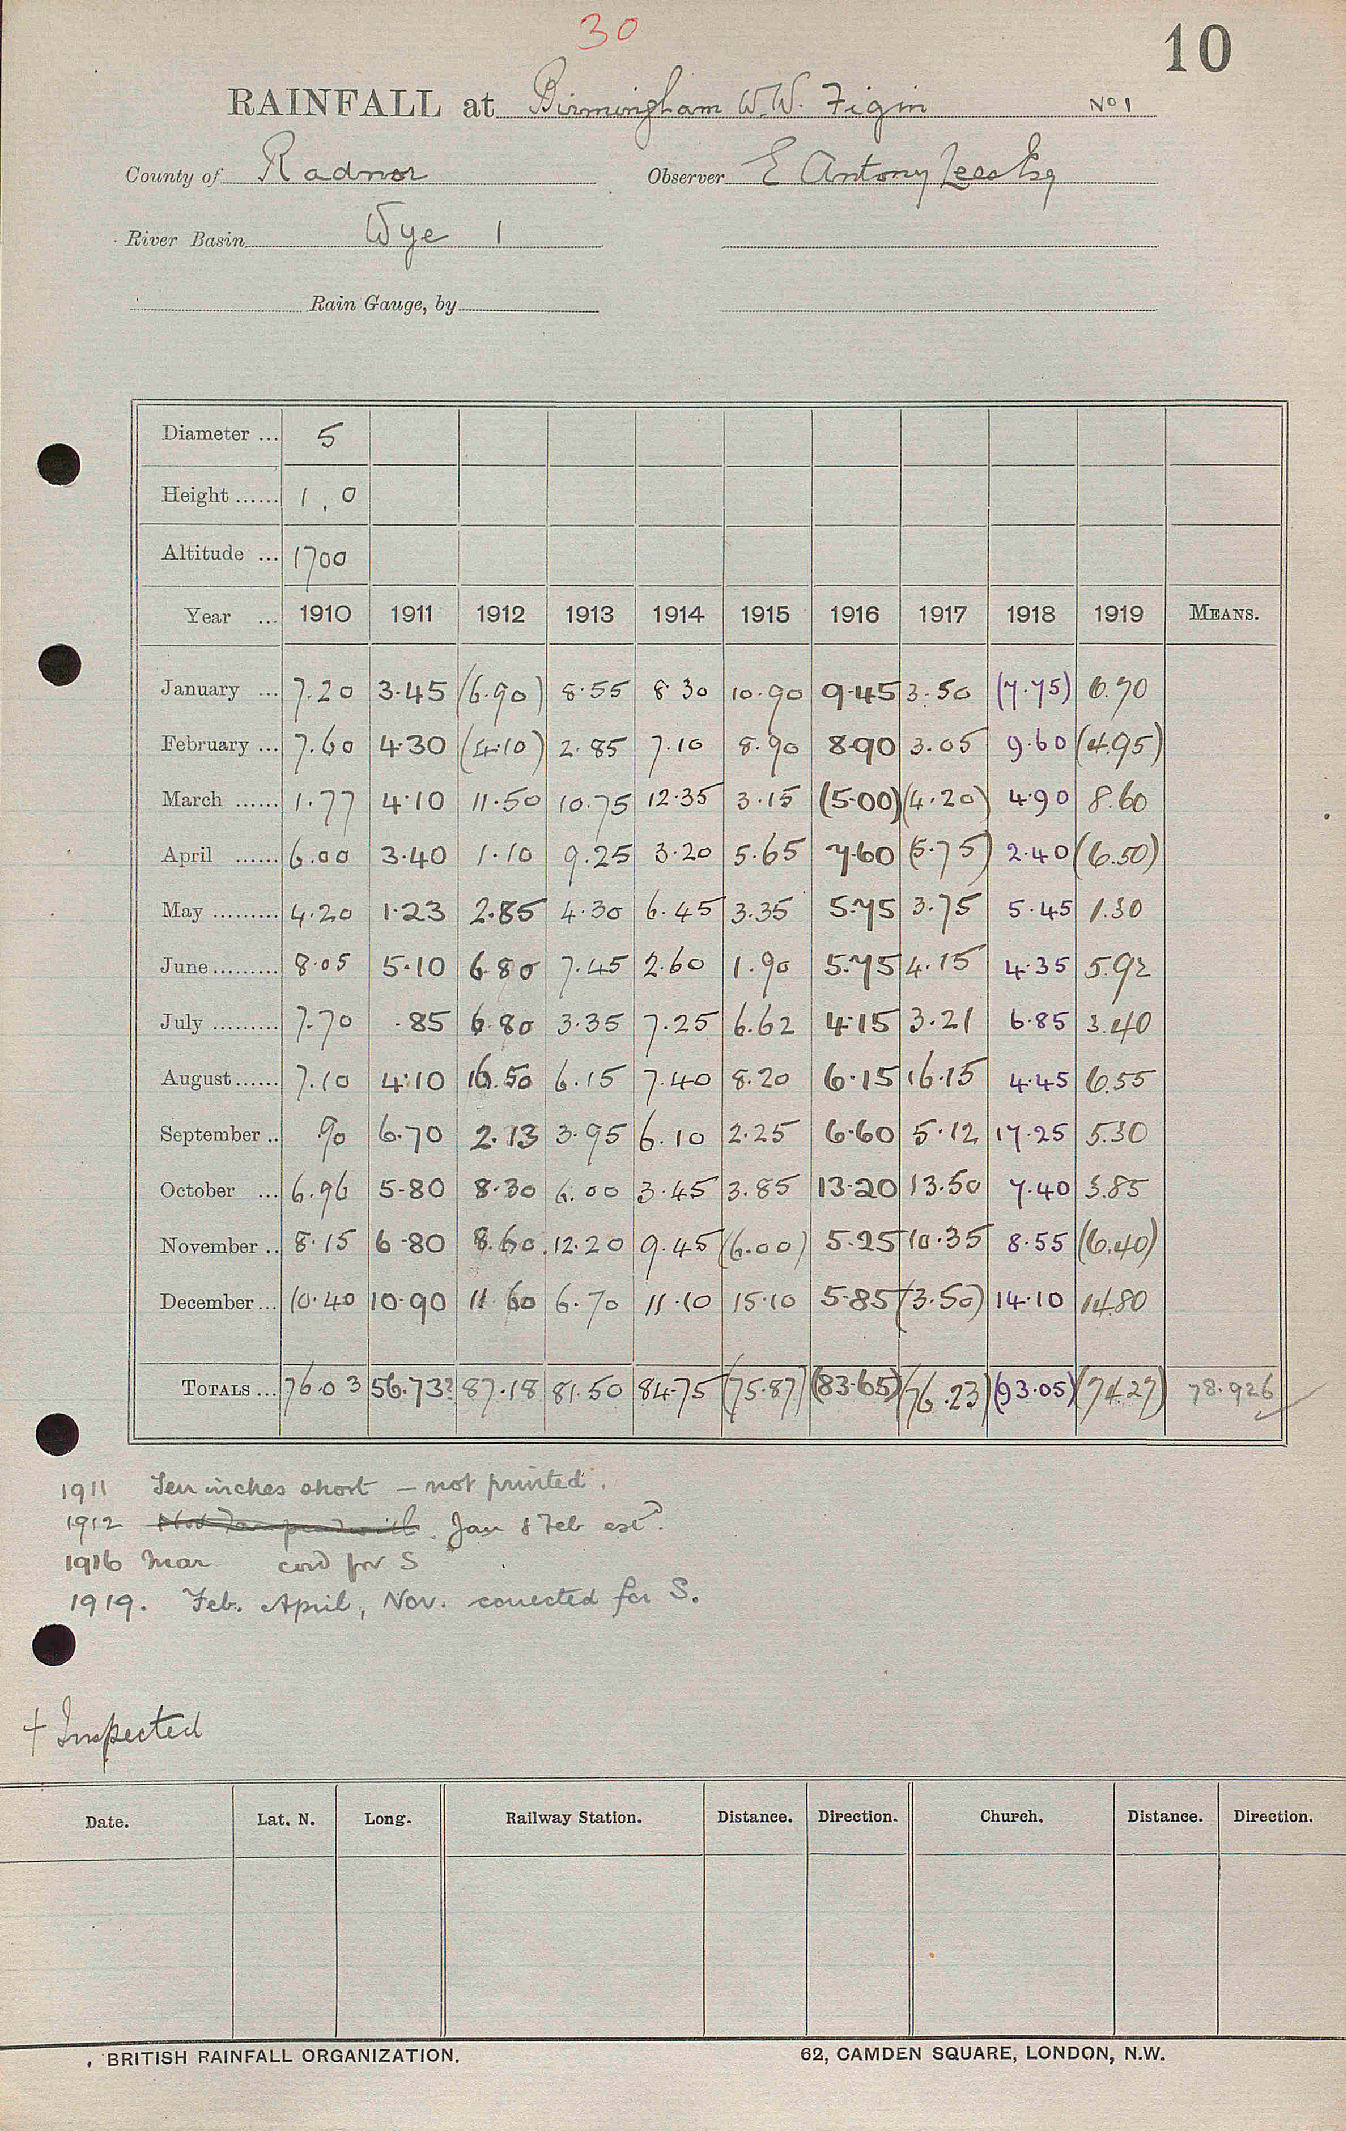 30
10
RAINFALL at Birmingham W.W. Figin No 1
County of Radnor Observer E Antony Lees Esq
River Basin Wye 1
Rain Gauge, by
Diameter ... 5
Height ...... 1 . 0
Altitude ... 1700
Year ... 1910 1911 1912 1913 1914 1915 1916 1917 1918 1919 MEANS.
January ... 7.20 3.45 (6.90) 8.55 8.30 10.90 9.45 3.50 (7.75) 6.70
February ... 7.60 4.30 (4.10) 2.85 7.10 8.90 8.90 3.05 9.60 (4.95)
March ...... 1.77 4.10 11.50 10.75 12.35 3.15 (5.00) (4.20) 4.90 8.60
April ...... 6.00 3.40 1.10 9.25 3.20 5.65 7.60 (5.75) 2.40 (6.50)
May ......... 4.20 1.23 2.85 4.30 6.45 3.35 5.75 3.75 5.45 1.30
June ......... 8.05 5.10 6.80 7.45 2.60 1.90 5.75 4.15 4.35 5.92
July ......... 7.70 .85 6.80 3.35 7.25 6.62 4.15 3.21 6.85 3.40
August ...... 7.10 4.10 16.50 6.15 7.40 8.20 6.15 16.15 4.45 6.55
September .. .90 6.70 2.13 3.95 6.10 2.25 6.60 5.12 17.25 5.30
October ... 6.96 5.80 8.30 6.00 3.45 3.85 13.20 13.50 7.40 3.85
November .. 8.15 6.80 8.60 12.20 9.45 (6.00) 5.25 10.35 8.55 (6.40)
December ... 10.40 10.90 11.60 6.70 11.10 15.10 5.85 (3.50) 14.10 14.80
TOTALS ... 76.03 56.73? 87.18 81.50 84.75 (75.87) (83.65) (76.23) (93.05) (74.27) 78.926
1911 Ten inches short – not printed.
1912 Jan & Feb estd.
1916 Mar cord for S
1919. Feb. April, Nov. corrected for S.
+ Inspected
Date. Lat. N. Long. Railway Station. Distance. Direction. Church. Distance. Direction.
BRITISH RAINFALL ORGANIZATION. 62, CAMDEN SQUARE, LONDON, N.W.